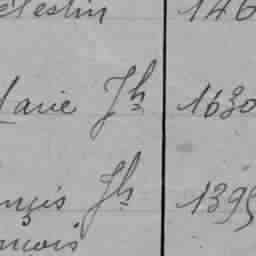 élestin 146
Marie Jh 1630
ançis Jh 1395
ançois